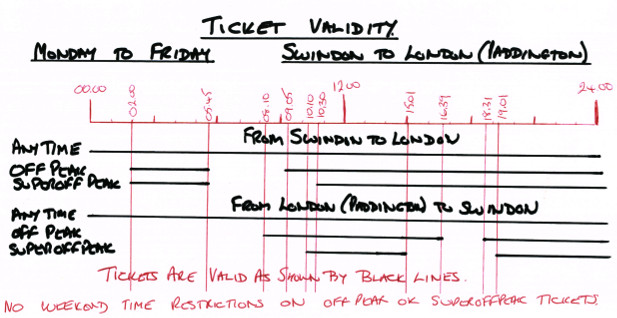 TICKET VALIDITY
MONDAY TO FRIDAY SWINDON TO LONDON (PADDINGTON)
00.00 02.00 05.45 08.10 09.05 10.10 10.30 12.00 15.01 16.39 18.31 19.01 24.00
FROM SWINDIN TO LONDON
ANYTIME
OFF PEAK
SUPEROFF PEAK
FROM LONDON (PADDINGTON) TO SWINDON
ANYTIME
OFF PEAK
SUPEROFFPEAK
TICKETS ARE VALID AS SHOWN BY BLACK LINES.
NO WEEKEND TIME RESTRICTIONS ON OFF PEAK OR SUPEROFFPEAK TICKETS.